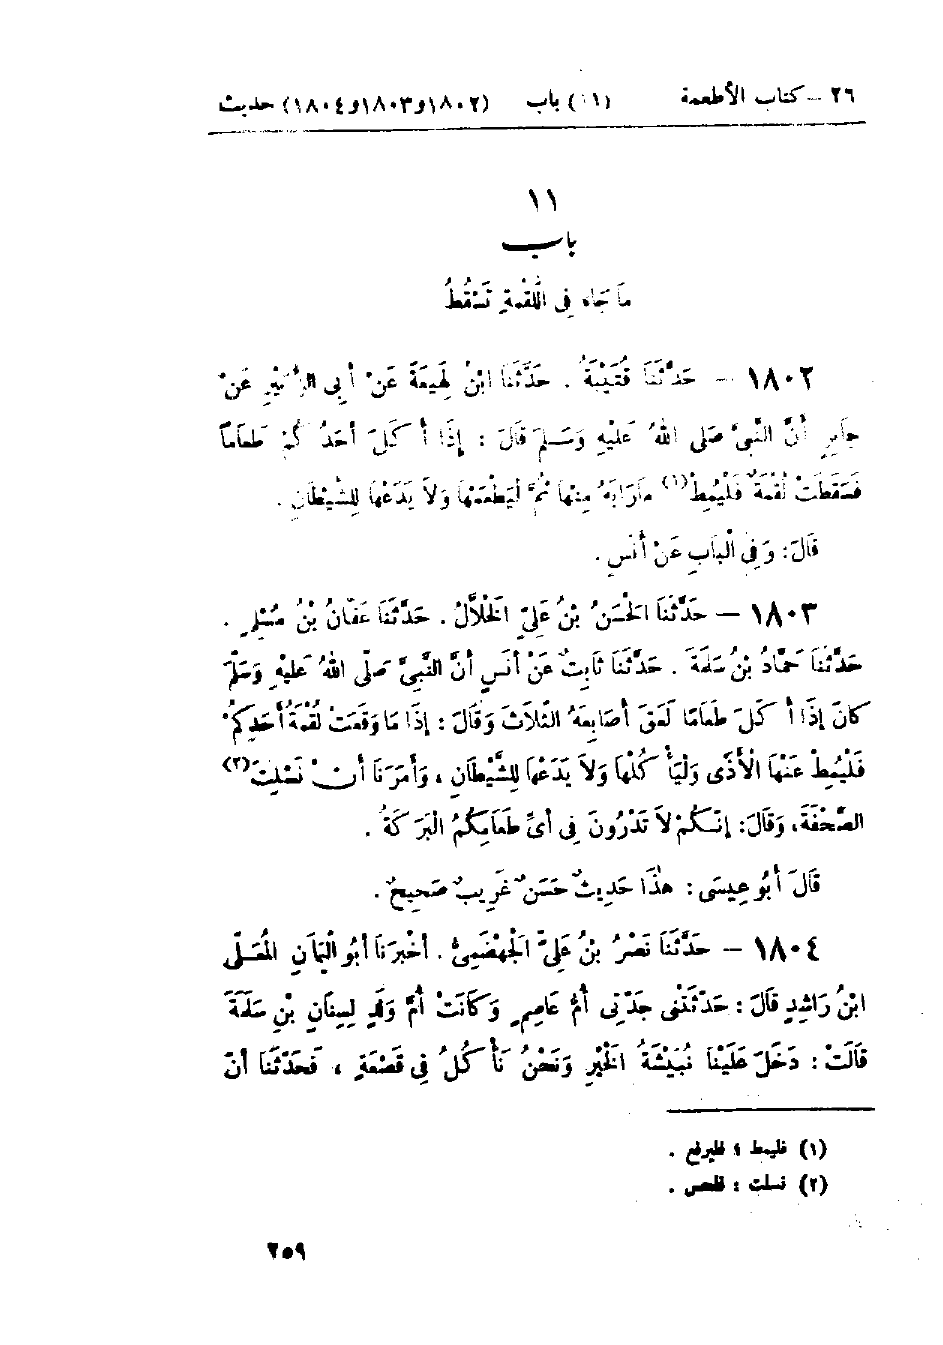 ٢٦ – كتاب الأطعمة (١١) باب (١٨٠٢و١٨٠٣و١٨٠٤) حديث
١١
باب
مَا جَاءَ فِى اللُّقْمَةِ تَسْقُطُ
١٨٠٢ – حَدَّثَنَا قُتَيْبَةُ . حَدَّثَنَا ابْنُ لَهِيعَةَ عَنْ أَبِى الزُّبَيْرِ عَنْ
جَابِرٍ أَنَّ النَّبِىَّ صَلى اللهُ عَلَيْهِ وَسَلمَ قَالَ : إِذَا أَكَلَ أَحَدُكُمْ طَعَامًا
فَسَقَطَتْ لُقْمَةٌ فَلْيُمِطْ(١) مَارَابَهُ مِنْهَا ثُمَّ لْيَطْعَمْهَا وَلاَ يَدَعْهَا لِلشَّيْطَانِ .
قَالَ: وَفِى الْبَابِ عَنْ أَنَسٍ .
١٨٠٣ – حَدَّثَنَا الْحَسَنُ بْنُ عَلِىٍّ الْخَلاَّلُ . حَدَّثَنَا عَفَّانُ بْنُ مُسْلِمٍ .
حَدَّثَنَا حَمَّادُ بْنُ سَلَمَةَ . حَدَّثَنَا ثَابِتٌ عَنْ أَنَسٍ أَنَّ النَّبِىَّ صَلّى اللهُ عَلَيْهِ وَسَلّمَ
كَانَ إِذَا أَكَلَ طَعَامًا لَعَقَ أَصَابِعَهُ الثّلاَثَ وَقَالَ : إِذَا مَا وَقَعَتْ لُقْمَةُ أَحَدِكُمْ
فَلْيُمِطْ عَنْهَا الْأَذَى وَلْيَأْكُلْهَا وَلاَ يَدَعْهَا لِلشَّيْطَانِ ، وَأَمَرَنَا أَنْ نَسْلِتَ(٢)
الصَّحْفَةَ، وَقَالَ: إِنَّكُمْ لاَ تَدْرُونَ فِى أَىِّ طَعَامِكُمُ الْبَرَكَةُ .
قَالَ أَبُو عِيسَى : هٰذَا حَدِيثٌ حَسَنٌ غَرِيبٌ صَحِيحٌ .
١٨٠٤ – حَدَّثَنَا نَصْرُ بْنُ عَلِىٍّ الْجَهْضَمِىُّ . أَخْبَرَنَا أَبُو الْيَمَانِ الْمُعَلّى
ابْنُ رَاشِدٍ قَالَ : حَدّثَتْنِى جَدّتِى أُمُّ عَاصِمٍ وَكَانَتْ أُمَّ وَلَدٍ لِسِنَانِ بْنِ سَلَمَةَ
قَالَتْ : دَخَلَ عَلَيْنَا نُبَيْشَةُ الْخَيْرِ وَنَحْنُ نَأْكُلُ فِى قَصْعَةٍ ، فَحَدّثَنَا أَنّ
(١) فليمط : فليرفع .
(٢) نسلت : نلحس .
٢٥٩